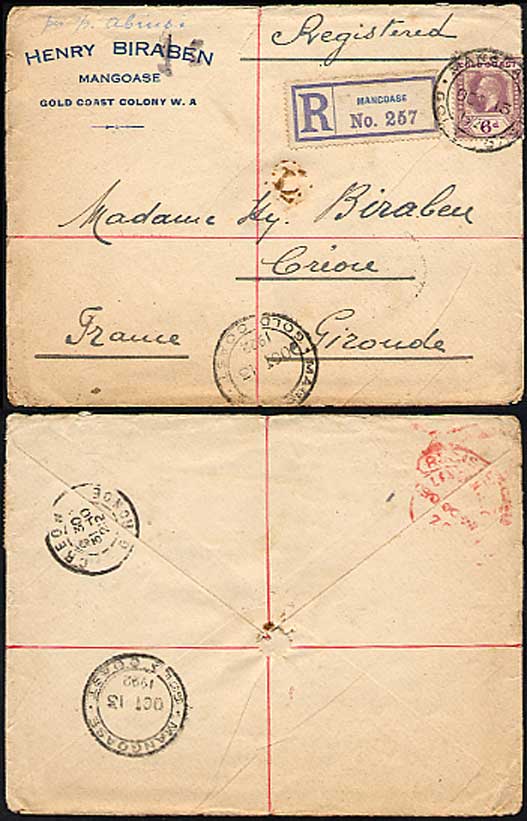 per p. Abinsi
HENRY BIRABEN
MANGOASE
GOLD COAST COLONY W. A
Registered
R
MANGOASE
No. 257
GOLD COAST
6d
Madame Hy. Biraben
Créon
France
Gironde
GOLD COAST
1922
OCT 13
CREON
GIRONDE
GOLD COAST
1922
OCT 13
MANGOASE